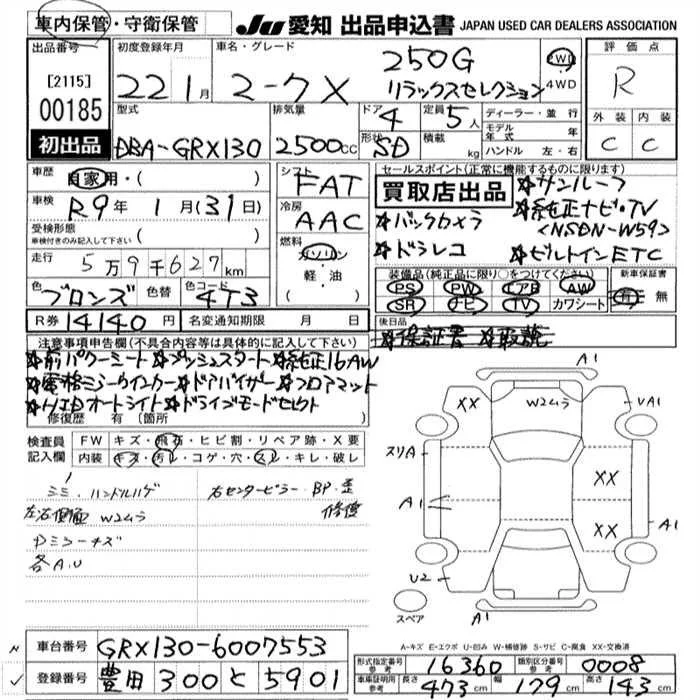 車内保管・守衛保管 JU 愛知 出品申込書 JAPAN USED CAR DEALERS ASSOCIATION
出品番号 [2115] 00185 初出品
初度登録年月 22 1月
車名・グレード マークX 250G リラックスセレクション 2WD 4WD
評価点 R
外装 C 内装 C
型式 DBA-GRX130
排気量 2500cc
ドア 4 形状 SD
定員 5人 積載 kg
ディーラー・並行
モデル年式 年
ハンドル 左・右
車歴 自家用・( )
車検 R9年 1月(31日)
受検形態 車検付きのみ記入して下さい ( )
走行 5万9千627km
色 ブロンズ 色替 色コード 4T3
シフト FAT
冷房 AAC
燃料 ガソリン 軽・油
R券 14140円 名変通知期限 月 日
セールスポイント(正常に機能するものに限ります)
買取店出品
☆サンルーフ
☆バックカメラ
☆純正ナビ・TV
<NSDN-W59>
☆ドラレコ ☆ビルトインETC
装備品(純正品に限り○をつけてください) 新車保証書
PS PW エアB AW 有 無
SR ナビ TV カワシート
後日品
☆保証書 ☆取説
注意事項申告欄(不具合内容等は具体的に記入して下さい)
☆前パワーシート ☆プッシュスタート ☆純正16AW
☆電格ミラーウインカー ☆ドアバイザー ☆フロアマット
☆HIDオートライト ☆ドライブモードセレクト
修復歴 有 (箇所
検査員記入欄
FW キズ・飛石・ヒビ割・リペア跡・X要
内装 キズ・汚レ・コゲ・穴・スレ・キレ・破レ
ハンドルハゲ 右センターピラー BP・歪
修復
左右側面 W2ムラ
各A.U
A1
XX W2ムラ VA1
スリA XX
A1 XX A1
U2
スペア A1
A-キズ E-エクボ U-凹み W-補修跡 S-サビ C-腐食 XX-交換済
車台番号 GRX130-6007553
登録番号 豊田 300 と 5901
形式指定番号 参考 16360 類別区分番号 参考 0008
車庫証明用 参考 長さ 473cm 幅 179cm 高さ 143cm